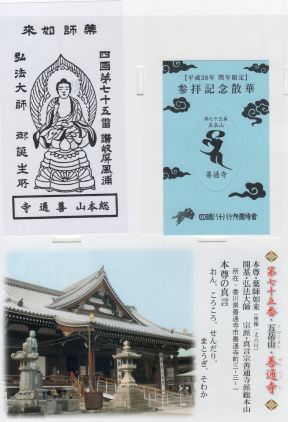 來如師藥
四國第七十五番 讃岐屏風浦
弘法大師 御誕生所
総本山 善通寺
【平成28年 閏年限定】
参拝記念散華
第七十五番
五岳山
善通寺
四国八十八ヶ所霊場会
第七十五番・五岳山・善通寺
本尊・薬師如来(座像一丈六尺)
開基・弘法大師 宗派・真言宗善通寺派総本山
(所在・香川県善通寺市善通寺町三-三-一)
本尊の真言
おん、ころころ、せんだり、
まとうぎ、そわか